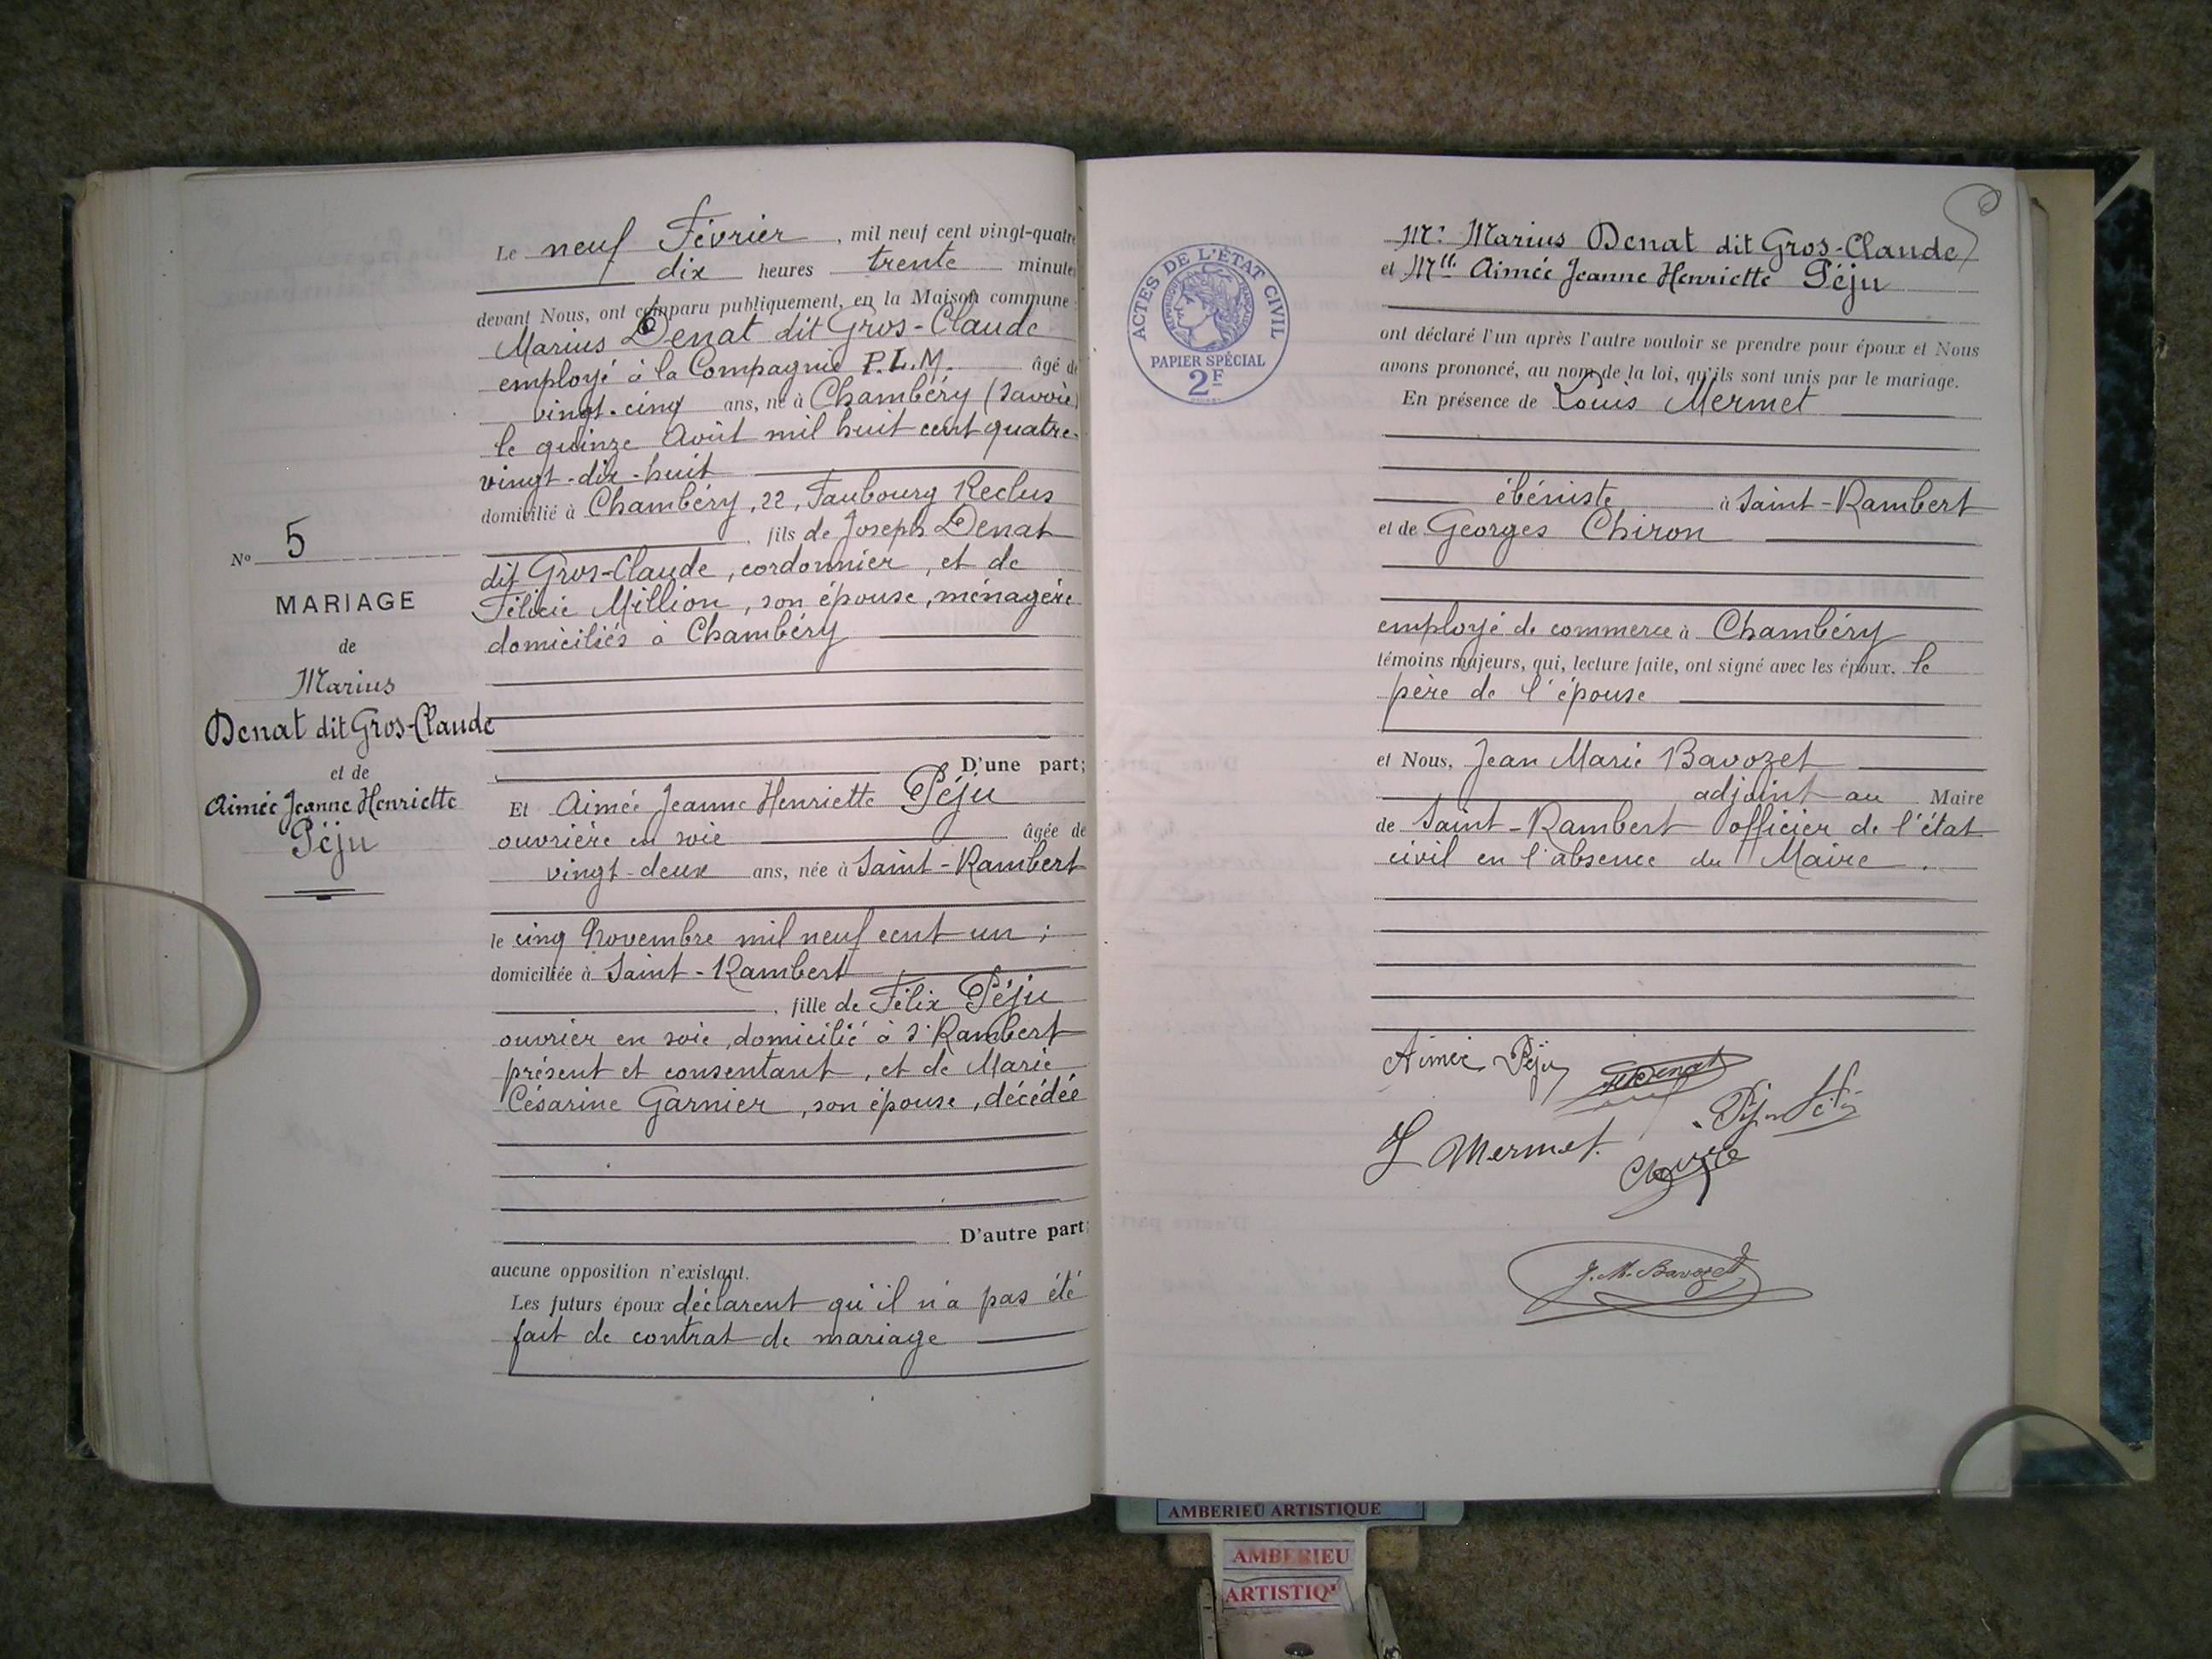 Le neuf Février, mil neuf cent vingt-quatre
dix heures trente minutes
devant Nous, ont comparu publiquement, en la Maison commune
Marius Denat dit Gros-Claude
employé à la Compagnie P.L.M. âgé de
vingt-cinq ans, né à Chambéry (Savoie)
le quinze Août mil huit cent quatre-
vingt-dix-huit
domicilié à Chambéry, 22, Faubourg Reclus
, fils de Joseph Denat
dit Gros-Claude, cordonnier, et de
Félicie Million, son épouse, ménagère
domiciliés à Chambéry
D'une part;
N° 5
MARIAGE
de
Marius
Denat dit Gros-Claude
et de
Aimée Jeanne Henriette
Péju
Et Aimée Jeanne Henriette Péju
ouvrière en soie âgée de
vingt-deux ans, née à Saint-Rambert
le cinq Novembre mil neuf cent un;
domiciliée à Saint-Rambert
, fille de Félix Péju
ouvrier en soie, domicilié à St Rambert
présent et consentant, et de Marie
Césarine Garnier, son épouse, décédée
D'autre part;
aucune opposition n'existant.
Les futurs époux déclarent qu'il n'a pas été
fait de contrat de mariage
ACTES DE L'ÉTAT CIVIL
RÉPUBLIQUE FRANÇAISE
PAPIER SPÉCIAL
2F
Mr Marius Denat dit Gros-Claude
et Mlle Aimée Jeanne Henriette Péju
ont déclaré l'un après l'autre vouloir se prendre pour époux et Nous
avons prononcé, au nom de la loi, qu'ils sont unis par le mariage.
En présence de Louis Mermet
ébéniste à Saint-Rambert
et de Georges Chiron
employé de commerce à Chambéry
témoins majeurs, qui, lecture faite, ont signé avec les époux. le
père de l'épouse
et Nous, Jean Marie Bavozet
adjoint au Maire
de Saint-Rambert officier de l'état
civil en l'absence du Maire.
Aimée Péju
Denat
Péju
L Mermet.
J. M. Bavozet
AMBERIEU ARTISTIQUE
AMBERIEU
ARTISTIQ